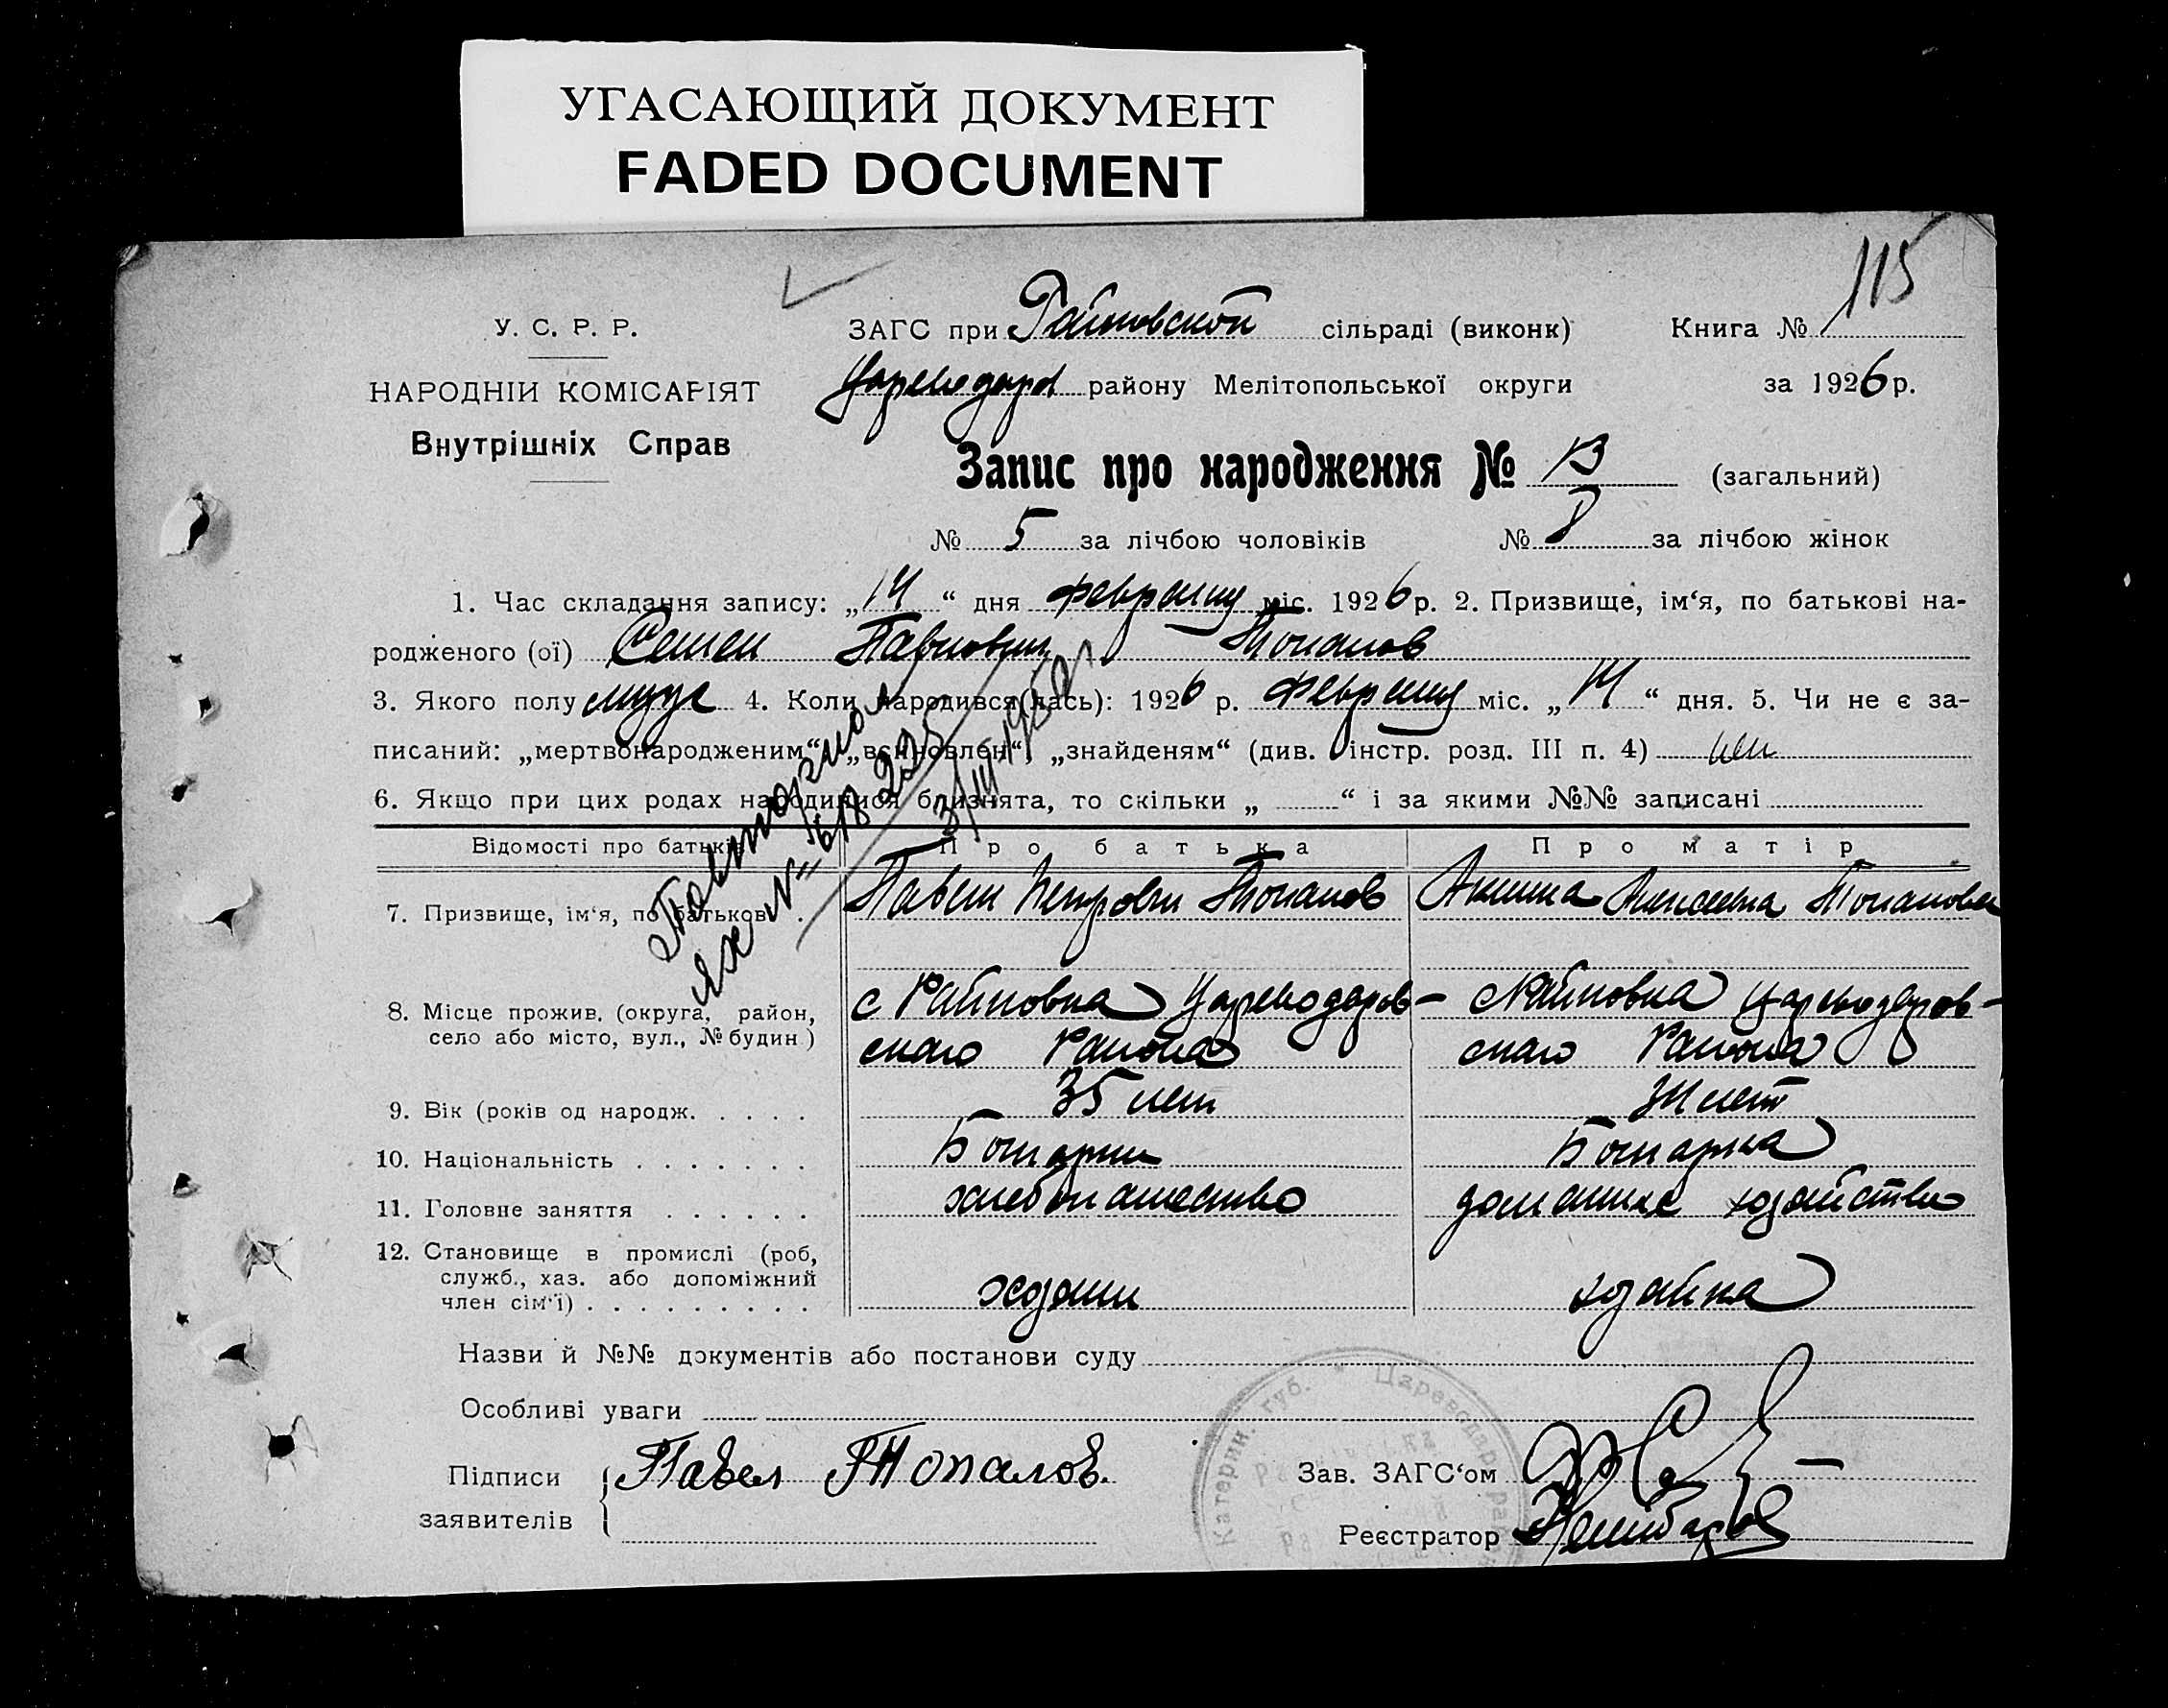 УГАСАЮЩИЙ ДОКУМЕНТ
FADED DOCUMENT
115
У. С. Р. Р.
НАРОДНІЙ КОМІСАРІЯТ
Внутрішніх Справ
ЗАГС при Райновской сільраді (виконк) Книга №
Цареводаров району Мелітопольської округи за 1926 р.
Запис про народження № 13 (загальний)
№ 5 за лічбою чоловіків № 8 за лічбою жінок
1. Час складання запису: „14“ дня февраля міс. 1926 р. 2. Призвище, ім‘я, по батькові на-
родженого (ої) Семен Павлович Топалов
3. Якого полу муж 4. Коли народився (лась): 1926 р. февраля міс. „14“ дня. 5. Чи не є за-
писаний: „мертвонародженим“ „всиновлен“, „знайденям“ (див. інстр. розд. III п. 4) нет
6. Якщо при цих родах народилися близнята, то скільки „ “ і за якими №№ записані
Повторное
ЯЖ №
Відомості про батьків Про батька Про матір
7. Призвище, ім‘я, по батькові Павел Петрович Топалов Акилина Алексеевна Топалова
8. Місце прожив. (округа, район, с Райновка Цареводаров- с Райновка Цареводаров-
село або місто, вул., № будин.) скаго Района скаго Района
9. Вік (років од народж. 35 лет 34 лет
10. Національність Болгарин Болгарка
11. Головне заняття хлебопашество домашнее хозяйство
12. Становище в промислі (роб,
служб., хаз. або допоміжний
член сім‘ї) хозяин хозяйка
Назви й №№ документів або постанови суду
Особливі уваги
Підписи Павел Топалов. Зав. ЗАГС‘ом
заявителів
Реєстратор
Катерин. губ. * Цареводар